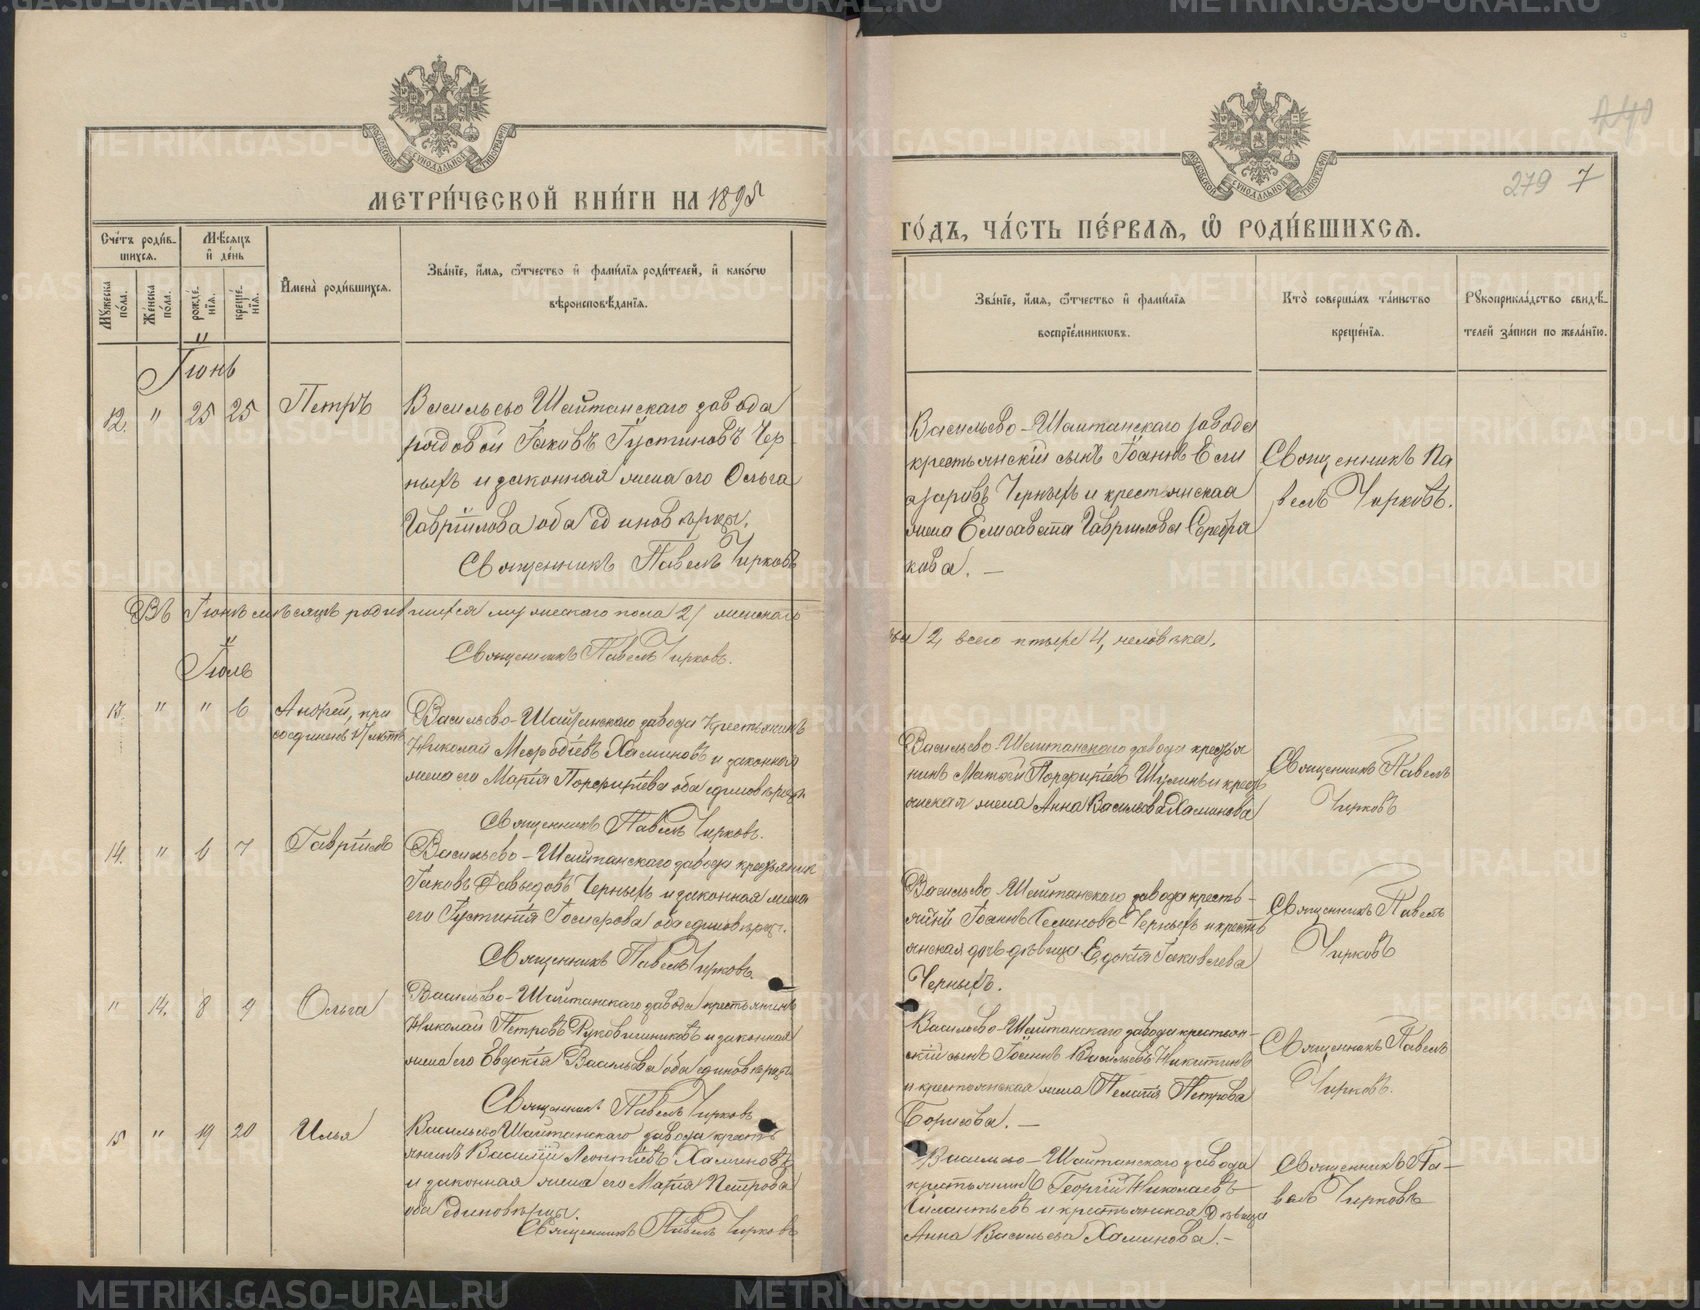 МЕТРИ́ЧЕСКОЙ КНИ́ГИ НА 1895
Сче́тъ роди́в-
шихся.
Мѣсяцъ
и҆ де́нь
Мꙋжеска
пола.
Же́нска
пола.
рожде́-
нїя.
креще́-
нїя.
И҆мена̀ роди́вшихся.
Зва́нїе, и҆́мя, ѻ҆́тчество и҆ фами́лїя роди́телей, и҆ како́гѡ
вѣроисповѣ́данїя.
Іюнь
12. " 25 25 Петръ
Васильево Шайтанскаго завода
рядовой Іаковъ Іустиновъ Чер-
ныхъ и законная жена его Ольга
Гавріилова оба единовѣрцы.
Священникъ Павелъ Чирковъ
Въ Іюнѣ мѣсяцѣ родившихся мужескаго пола 2, женскаго
Священникъ Павелъ Чирковъ.
Іюль
13. " " 6 Андрей, при
соединенъ лѣтъ
Васильево-Шайтанскаго завода крестьянинъ
Николай Меѳодіевъ Хаминовъ и законная
жена его Марія Порфиріева оба единовѣрцы
Священникъ Павелъ Чирковъ.
14. " 6 7 Гавріилъ
Васильево-Шайтанскаго завода крестьянинъ
Іаковъ Давыдовъ Черныхъ и законная жена
его Іустинія Іосифова оба единовѣрц.
Священникъ Павелъ Чирковъ
" 14. 8 9 Ольга
Васильево-Шайтанскаго завода крестьянинъ
Николай Петровъ Рукавишниковъ и законная
жена его Евдокія Васильева оба единовѣрцы
Священникъ Павелъ Чирковъ
15 " 19 20 Илья
Васильево Шайтанскаго завода кресть
янинъ Василій Леонтіевъ Хаминовъ
и законная жена его Марія Петрова
оба единовѣрцы.
Священникъ Павелъ Чирковъ
240
279 7
ГО́ДЪ, ЧА́СТЬ ПЕ́РВАЯ, Ѡ҆ РОДИ́ВШИХСЯ.
Зва́нїе, и҆́мя, ѻ҆́тчество и҆ фами́лїя
воспрїе́мникѡвъ.
Кто̀ соверша́лъ та́инство
креще́нїя.
Рꙋкоприкла́дство свидѣ́-
телей за́писи по жела́нїю.
Васильево-Шайтанскаго завода
крестьянскій сынъ Іоаннъ Ели
азаровъ Черныхъ и крестьянская
жена Елисавета Гавріилова Серебря
кова. —
Священникъ Па
велъ Чирковъ.
2, всего четыре 4, человѣка.
Васильево-Шайтанскаго завода кресть
нинъ Матѳей Порфиріевъ Шулинъ и кресть
янская жена Анна Васильева Хаминова
Священникъ Павелъ
Чирковъ
Васильево-Шайтанскаго завода кресть-
янинъ Іоаннъ Семеновъ Черныхъ и кресть
янская дочь дѣвица Евдокія Іаковлева
Черныхъ.
Священникъ Павелъ
Чирковъ
Васильево-Шайтанскаго завода крестьян-
скій сынъ Іоаннъ Васильевъ Никитинъ
и крестьянская жена Пелагія Петрова
Борисова. —
Священникъ Павелъ
Чирковъ.
Васильево-Шайтанскаго завода
крестьянинъ Георгій Николаевъ
Силантьевъ и крестьянская дѣвица
Анна Васильева Хаминова. —
Священникъ Па-
велъ Чирковъ
METRIKI.GASO-URAL.RU